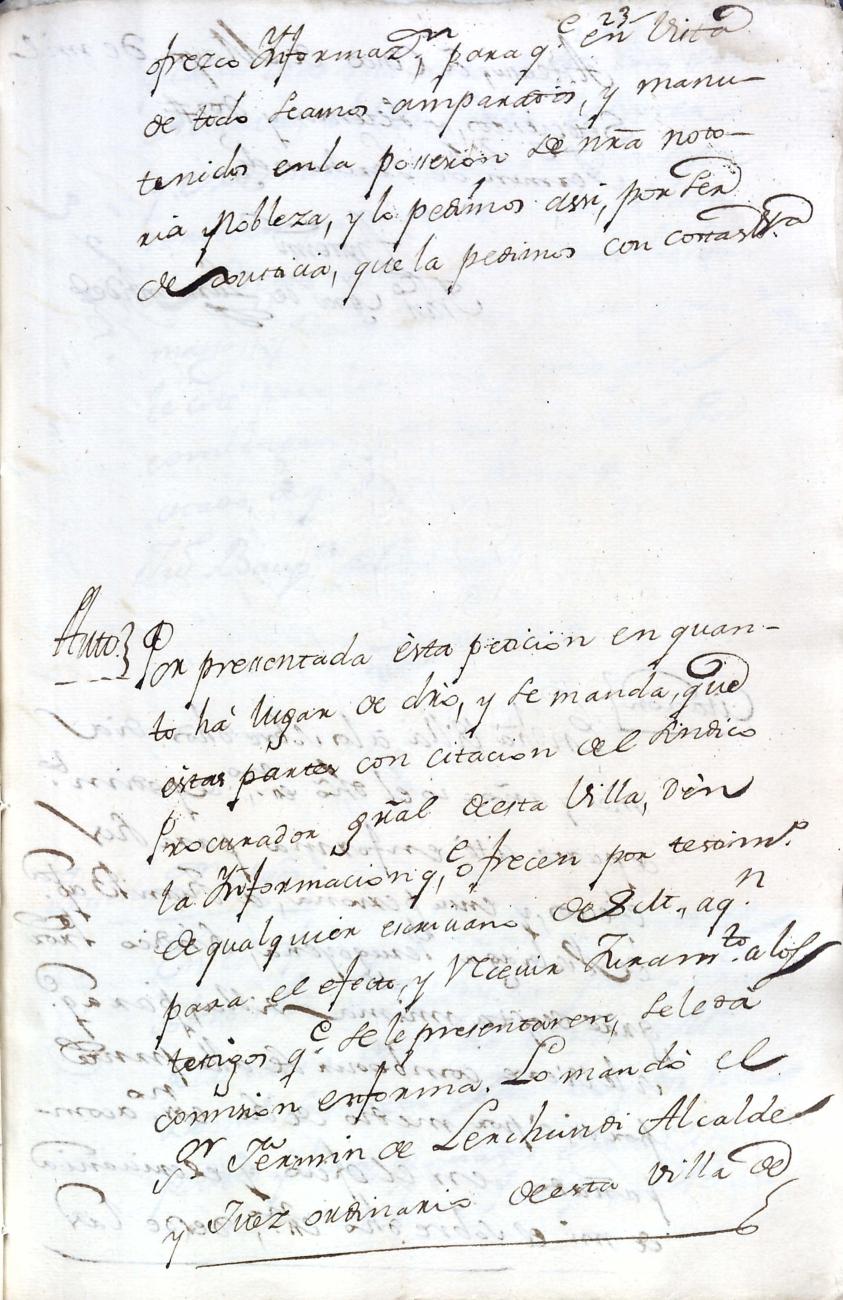 23
ofrezco Informazn, para qe en Vista
de todo seamos amparados, y manu-
tenidos en la possesion de nra noto-
ria Nobleza, y lo pedimos assi, por ser
de Justicia, que la pedimos con costas
Auto. Por presentada èsta peticion en quan-
to há lugar de dro, y se manda, que
èstas partes con citacion del Sindico
Procurador gral de esta Villa, dèn
la Informacion qe ofrecen por testimo
de qualquier escrivano de aqn
para el efecto, y recivir Juramto a los
testigos qe se le presentaren, se le dà
comision en forma. Lo mandò el
Sr Fermin de Lerchundi Alcalde
y Juez ordinario de esta Villa de